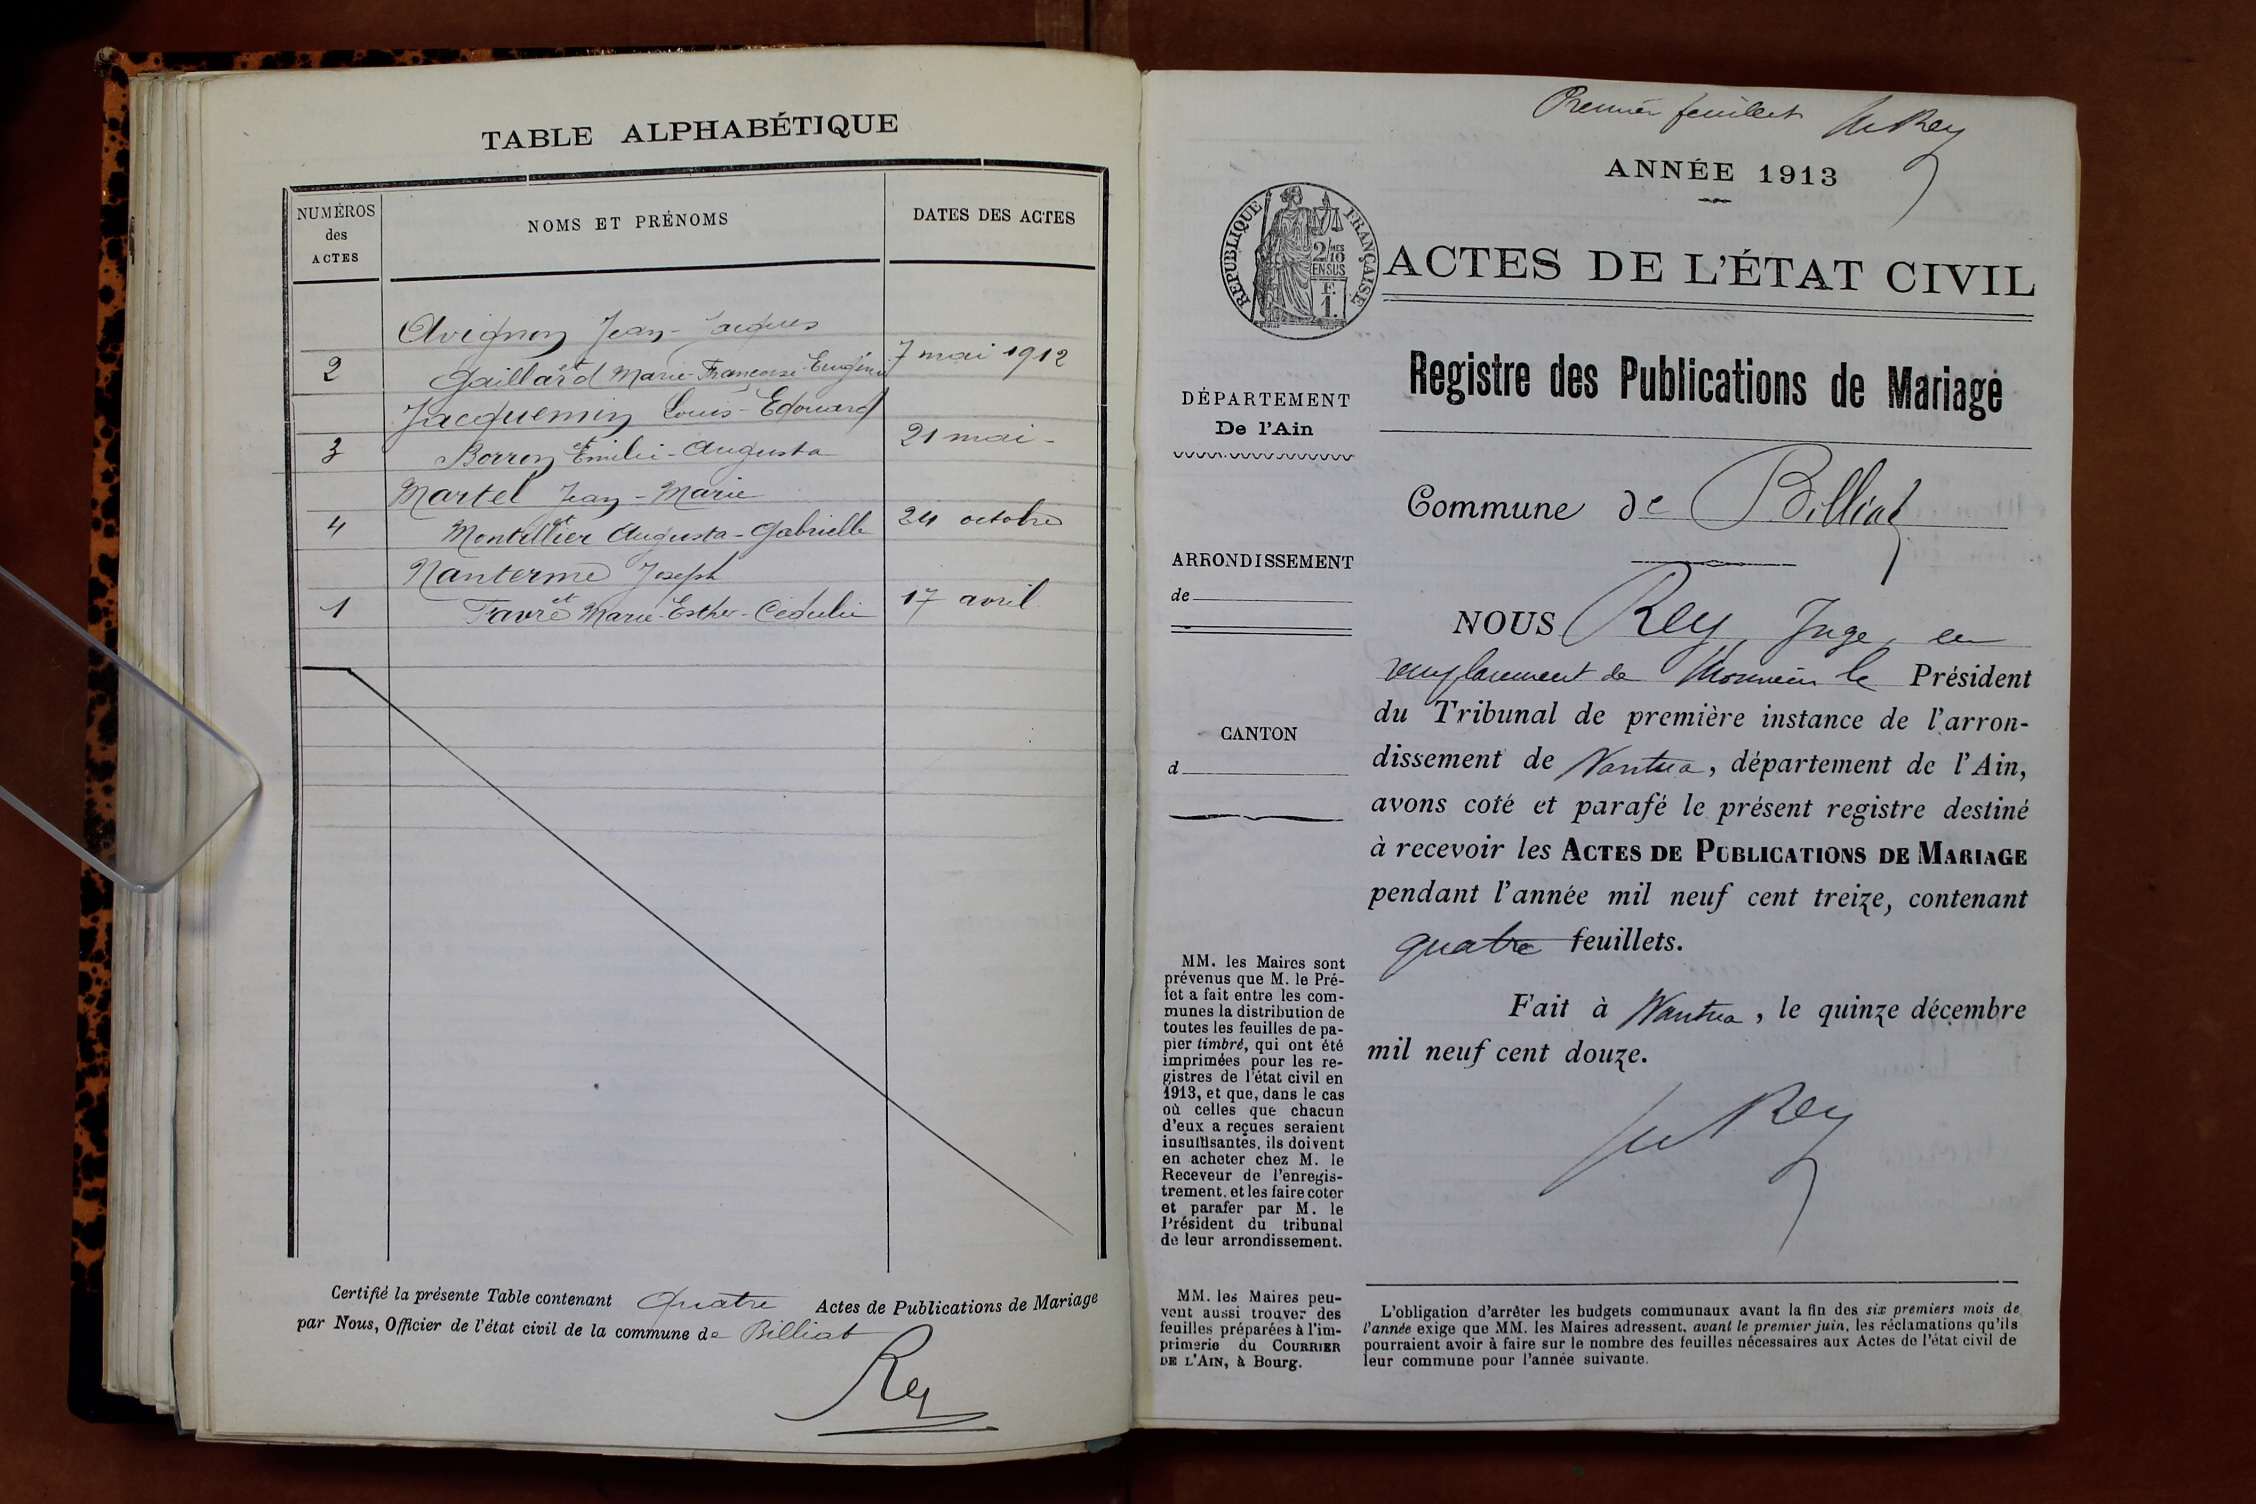 TABLE ALPHABÉTIQUE
NUMÉROS
des
ACTES
NOMS ET PRÉNOMS
DATES DES ACTES
Avignon Jean-Jacques
et
2 Gaillard Marie-Françoise-Eugénie 7 mai 1912
Jacquemin Louis-Edouard
et
3 Borron Emilie-Augusta 21 mai -
Martel Jean-Marie
et
4 Montillier Augusta-Gabrielle 24 octobre
Nanterme Joseph
et
1 Favre Marie-Esther- 17 avril
Certifié la présente Table contenant Quatre Actes de Publications de Mariage
par Nous, Officier de l'état civil de la commune de Billiat
Rey
Premier feuillet Rey
ANNÉE 1913
RÉPUBLIQUE FRANÇAISE
2/10 MES
EN SUS
F.
1.
ACTES DE L'ÉTAT CIVIL
Registre des Publications de Mariage
DÉPARTEMENT
De l'Ain
Commune de Billiat
ARRONDISSEMENT
de
CANTON
d
NOUS Rey, Juge, en
remplacement de Monsieur le Président
du Tribunal de première instance de l'arron-
dissement de Nantua, département de l'Ain,
avons coté et parafé le présent registre destiné
à recevoir les ACTES DE PUBLICATIONS DE MARIAGE
pendant l'année mil neuf cent treize, contenant
quatre feuillets.
Fait à Nantua, le quinze décembre
mil neuf cent douze.
Rey
MM. les Maires sont
prévenus que M. le Pré-
fet a fait entre les com-
munes la distribution de
toutes les feuilles de pa-
pier timbré, qui ont été
imprimées pour les re-
gistres de l'état civil en
1913, et que, dans le cas
où celles que chacun
d'eux a reçues seraient
insuffisantes, ils doivent
en acheter chez M. le
Receveur de l'enregis-
trement, et les faire coter
et parafer par M. le
Président du tribunal
de leur arrondissement.
MM. les Maires peu-
vent aussi trouver des
feuilles préparées à l'im-
primerie du COURRIER
DE L'AIN, à Bourg.
L'obligation d'arrêter les budgets communaux avant la fin des six premiers mois de
l'année exige que MM. les Maires adressent, avant le premier juin, les réclamations qu'ils
pourraient avoir à faire sur le nombre des feuilles nécessaires aux Actes de l'état civil de
leur commune pour l'année suivante.